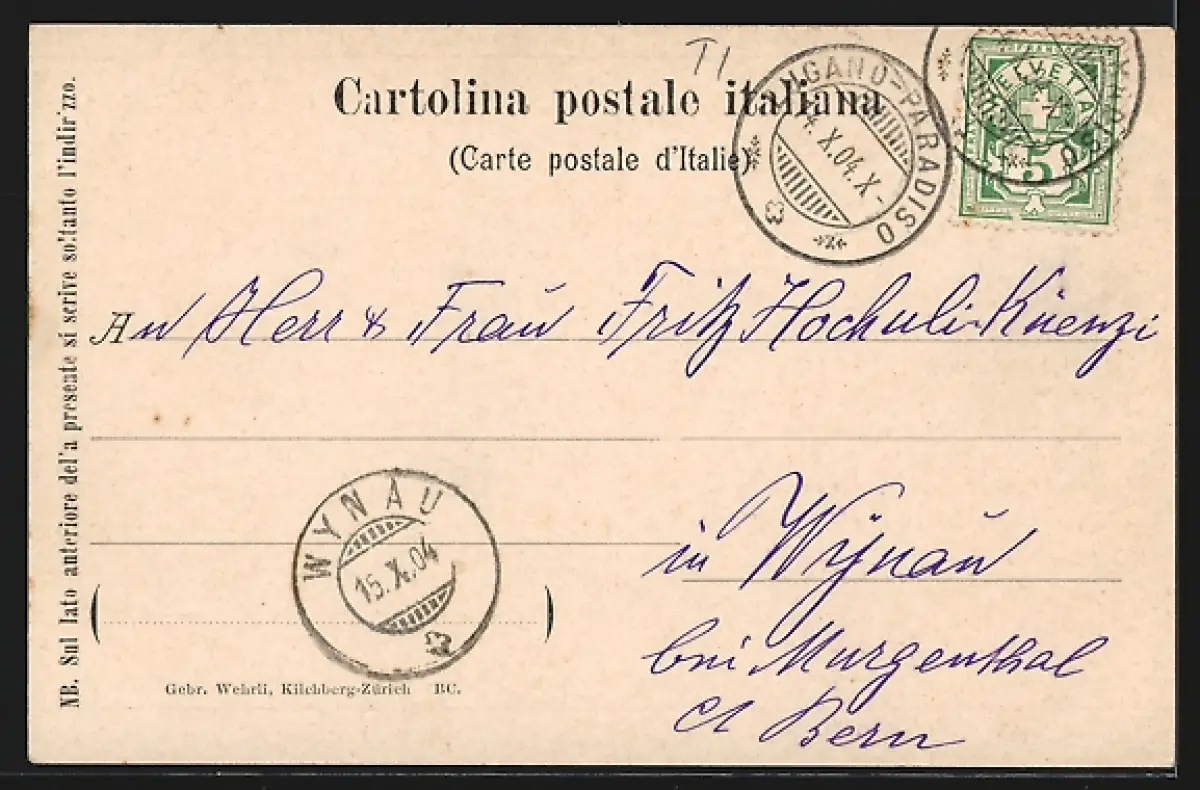 T1
Cartolina postale italiana
(Carte postale d'Italie)
LUGANO=PARADISO
4. X.04.X-
HELVETIA
FRANCO
5
An Herr & Frau Fritz Hochuli-Küenzi
in Wynau
bei Murgenthal
Ct Bern
WYNAU
15.X.04
Gebr. Wehrli, Kilchberg-Zürich BC.
NB. Sul lato anteriore del'a presente si scrive soltanto l'indirizzo.